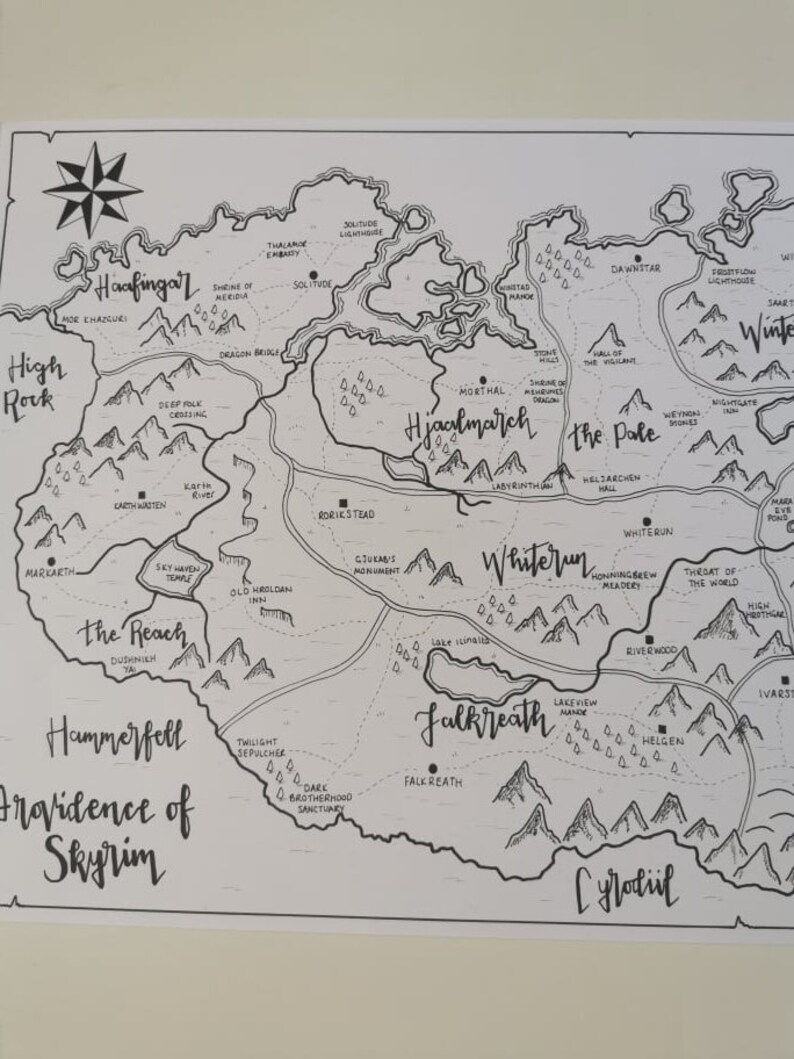 SOLITUDE
LIGHTHOUSE
THALAMOR
EMBASSY
DAWNSTAR
FROSTFLOW
LIGHTHOUSE
Haafingar
SHRINE OF
MERIDIA
SOLITUDE
WINSTAD
MANOR
MOR KHAZGURI
Winte
High
Rock
DRAGON BRIDGE
STONE
HILLS
HALL OF
THE VIGILANT
MORTHAL
SHRINE OF
MEHRUNES
DRAGON
DEEP FOLK
CROSSING
Hjaalmarch
the Pale
WEYNON
STONES
NIGHTGATE
INN
Karth
River
KARTHWASTEN
LABYRINTHIAN
HELJARCHEN
HALL
RORIKSTEAD
WHITERUN
MARA
EYE
POND
MARKARTH
SKY HAVEN
TEMPLE
GJUKAB'S
MONUMENT
Whiterun
HONNINGBREW
MEADERY
THROAT OF
THE WORLD
OLD HROLDAN
INN
HIGH
HROTHGAR
the Reach
DUSHNIKH
YAL
Lake Ilinalta
RIVERWOOD
IVARST
Hammerfell
TWILIGHT
SEPULCHER
Falkreath
LAKEVIEW
MANOR
HELGEN
FALKREATH
DARK
BROTHERHOOD
SANCTUARY
Providence of
Skyrim
Cyrodiil